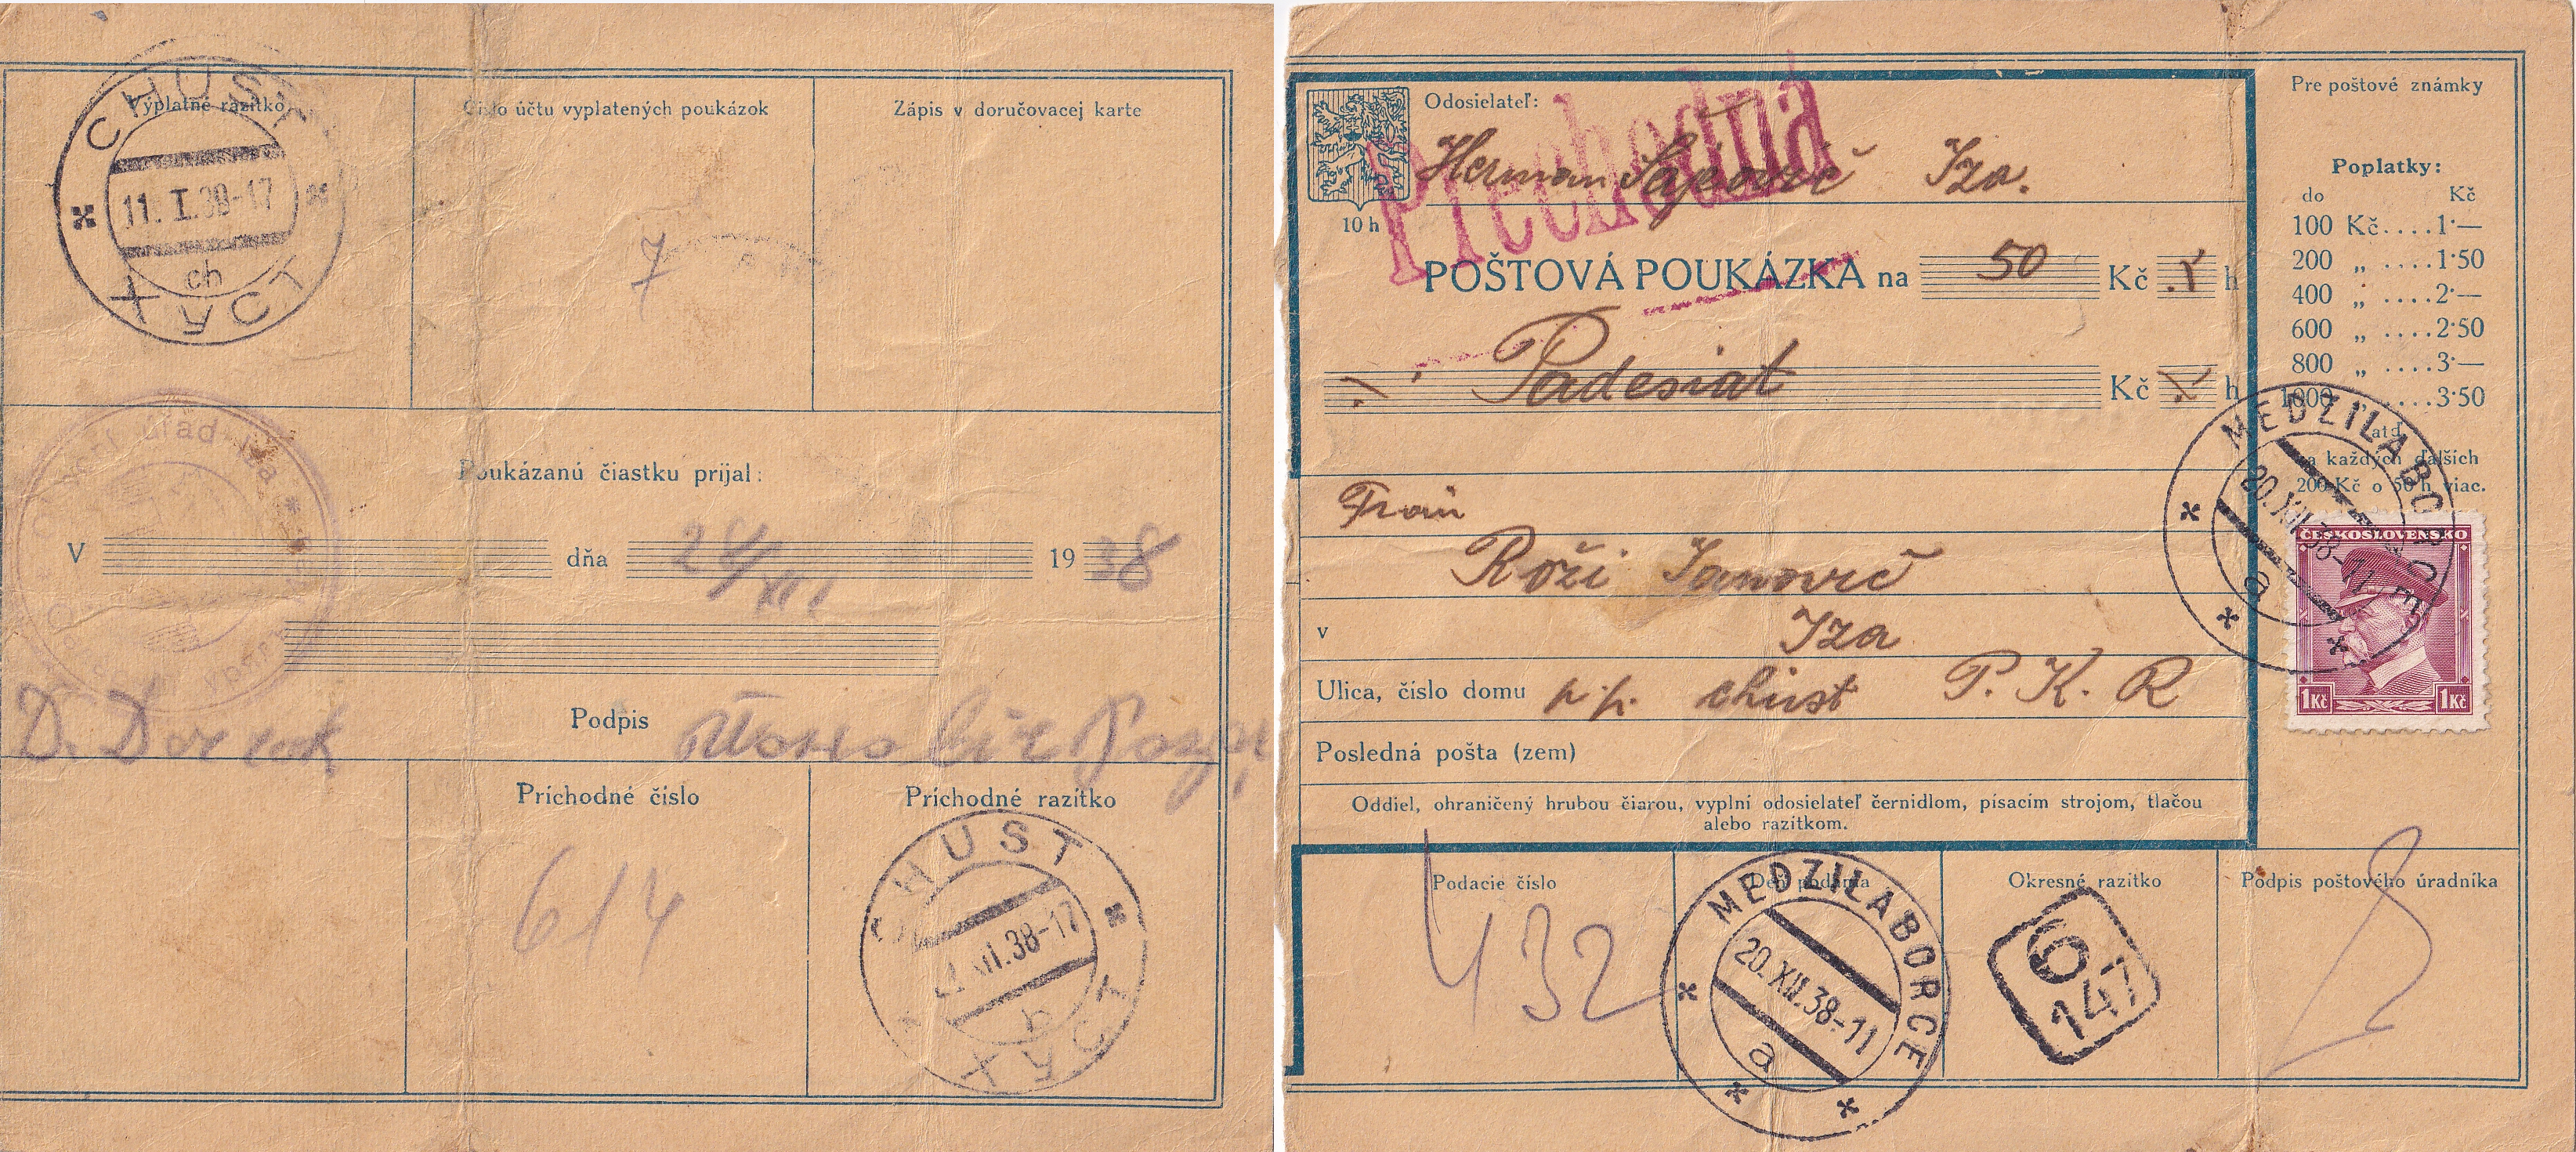 CHUST
Výplatné razítko
Číslo účtu vyplatených poukázok
Zápis v doručovacej karte
11. I. 39-17
ch
ХУСТ
7
Poukázanú čiastku prijal:
V
dňa 28/XII 1938
Podpis
Príchodné číslo
Príchodné razítko
614
CHUST
XII.38-17
b
ХУСТ
Odosielateľ:
Prechodná
Herman Iza.
10 h
POŠTOVÁ POUKÁZKA na 50 Kč h
Padesiat Kč h
Roži Janovič
v Iza
Ulica, číslo domu p.p. chust P. K. R
Posledná pošta (zem)
Oddiel, ohraničený hrubou čiarou, vyplní odosielateľ černidlom, písacím strojom, tlačou
alebo razítkom.
Pre poštové známky
Poplatky:
do Kč
100 Kč....1·—
200 „ ....1·50
400 „ ....2·—
600 „ ....2·50
800 „ ....3·—
1000 ....3·50
atď.
za každých ďalších
200 Kč o 50 h viac.
MEDZILABORCE
20.XII.38-11
a
ČESKOSLOVENSKO
1Kč 1Kč
Podacie číslo
Deň podania
Okresné razítko
Podpis poštového úradníka
432
MEDZILABORCE
20.XII.38-11
a
6
147